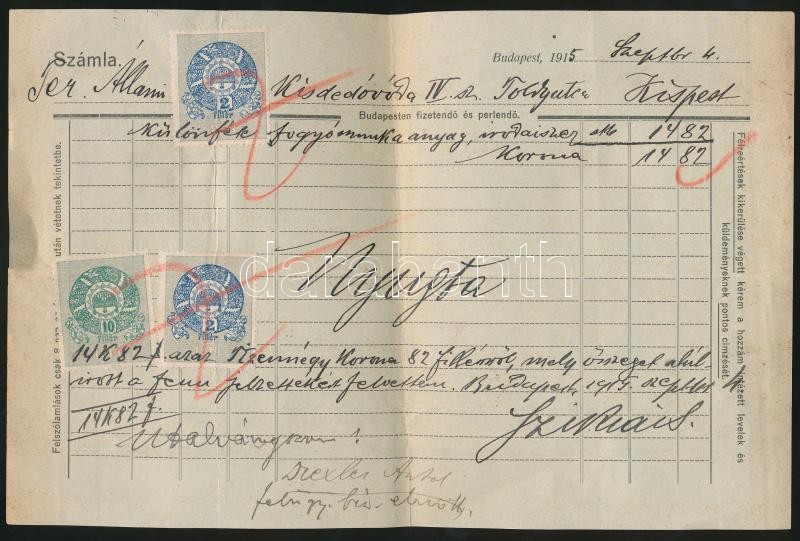 Számla.
Budapest, 1915 Szeptbr 4.
Ter. Állami Kisdedóvóda IV. sz. Toldyutca Kispest
Budapesten fizetendő és perlendő.
Különfék fogyó munka anyag, irodaiszer 1482
Korona 1482
2
fillér
Nyugta
10
fillér
2
fillér
14K 82 f azaz Tizennégy Korona 82 fillérről, mely összeget alúl-
irott a fenn jelzettekért felvettem. Budapest, 1915. szeptbr 4
14K 82 f.
Szikrai S.
Utalványozom!
felügy. biz. elnök.
Félreértések kikerülése végett kérem a hozzám intézett levelek és
küldeményeknek pontos címzését.
Felszólamlások csak 8 nap után vétetnek tekintetbe.
darabanth